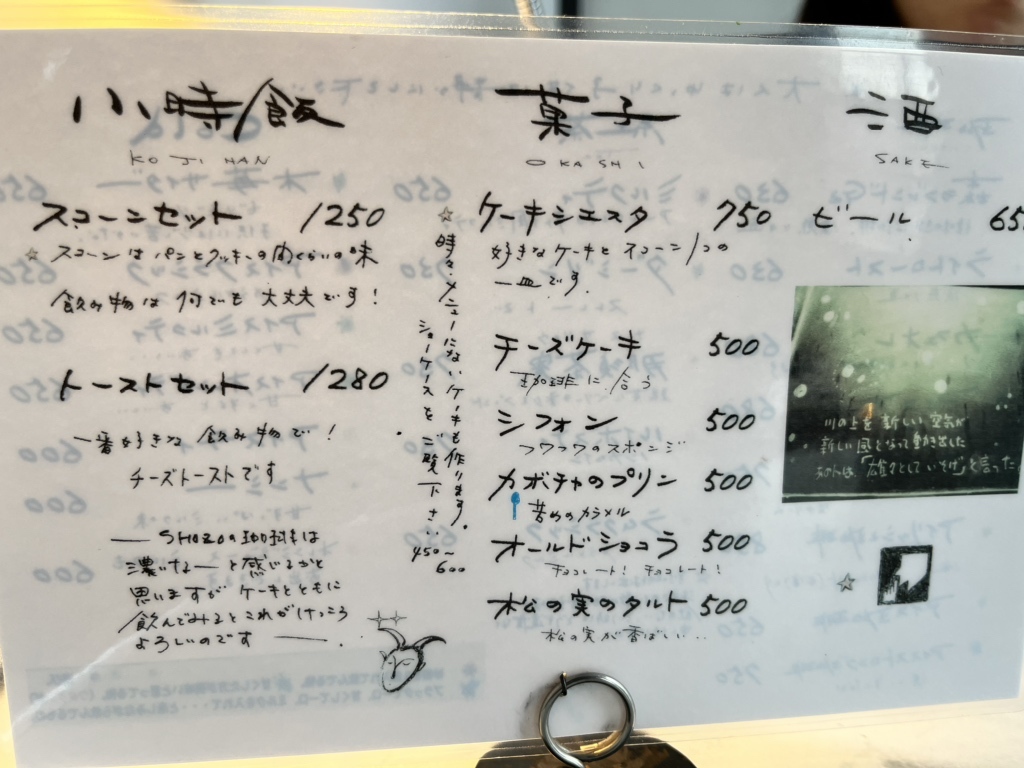 小時飯
KOJIHAN
スコーンセット 1250
☆スコーンはパンとクッキーの間くらいの味
飲み物は何でも大丈夫です!
トーストセット 1280
一番好きな飲み物で!
チーズトーストです
SHOZOの珈琲は
濃いなーと感じるかと
思いますがケーキとともに
飲んでみるとこれがけっこう
よろしいのです
☆時々メニューにないケーキも作ります。
ショーケースをご覧下さい
450〜
600
菓子
OKASHI
ケーキシエスタ 750
好きなケーキとスコーン1つの
一皿です
チーズケーキ 500
珈琲に合う
シフォン 500
フワフワのスポンジ
カボチャのプリン 500
苦めのカラメル
オールドショコラ 500
チョコレート! チョコレート!
松の実のタルト 500
松の実が香ばしい..
酒
SAKE
ビール 65
川の上を新しい空気が
新しい風となって動き出した
と言った